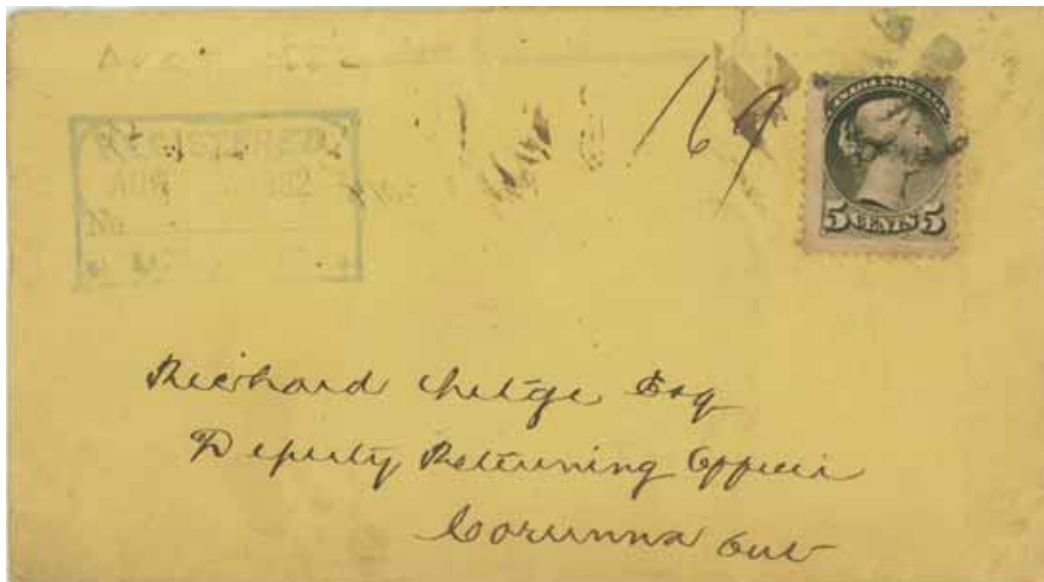 REGISTERED
AUG 1882
No
69
CANADA POSTAGE
5 CENTS 5
Richard Esq
Deputy Returning Officer
Corunna Ont